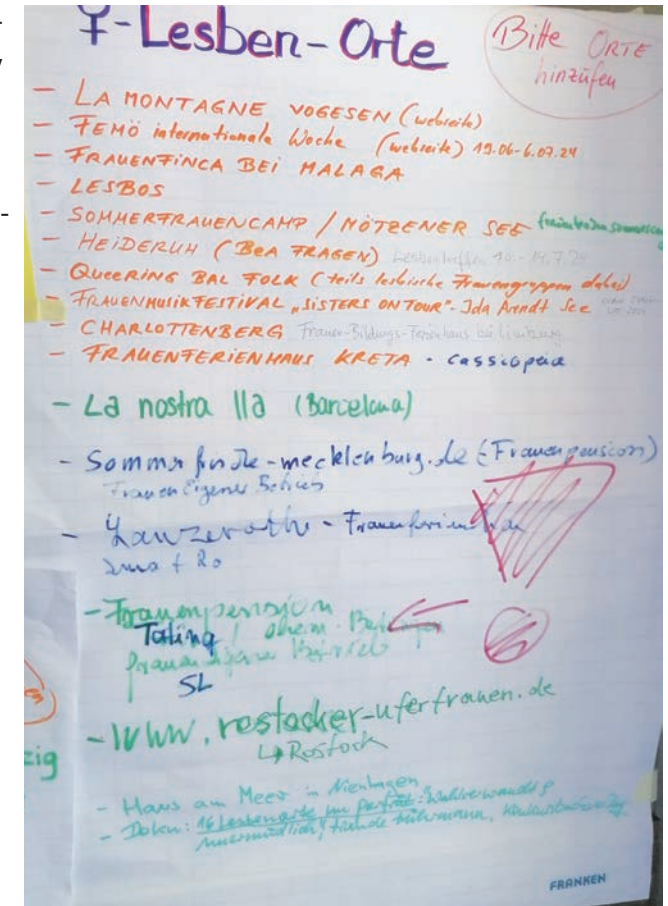 ♀-Lesben-Orte
Bitte ORTE
hinzufügen
- LA MONTAGNE VOGESEN (webseite)
- FEMÖ internationale Woche (webseite) 19.06-6.07.24
- FRAUENFINCA BEI MALAGA
- LESBOS
- SOMMERFRAUENCAMP / MÖTZENER SEE
- HEIDERUH (BEA FRAGEN) Lesbentreffen 10.-14.7.24
- QUEERING BAL FOLK (teils lesbische Frauengruppen dabei)
- FRAUENMUSIKFESTIVAL „SISTERS ON TOUR"- Ida Arndt See
- CHARLOTTENBERG Frauen-Bildungs-Ferienhaus bei Limburg
- FRAUENFERIENHAUS KRETA - cassiopeia
- La nostra Illa (Barcelona)
- mecklenburg.de (Frauenpension)
Frauen Eigener Betrieb
- Lanzeroth -
- Frauenpension
Tating
SL
- www.rostocker-uferfrauen.de
↳ Rostock
- Haus am Meer in Nienhagen
- Doken: 16 Lesbenorte im
zig
FRANKEN